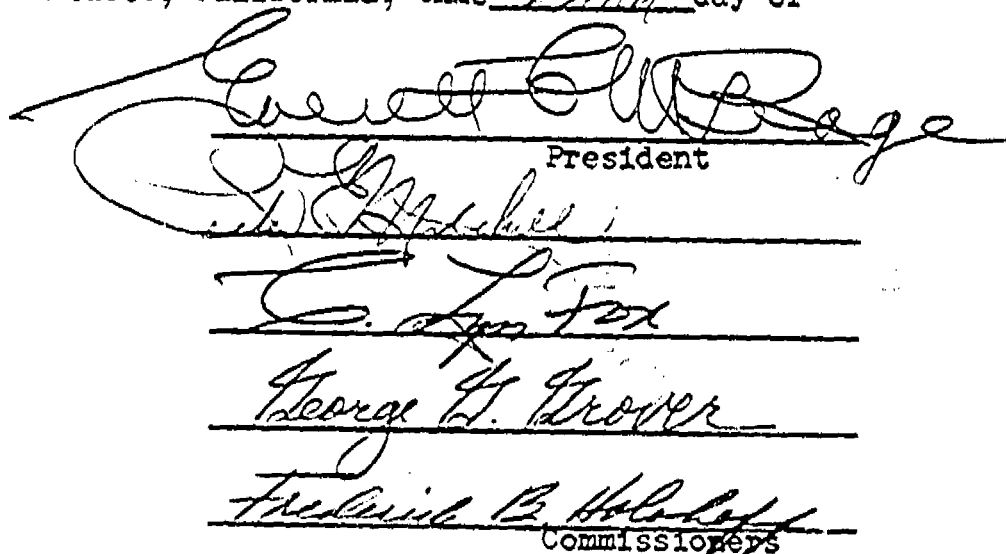 California, this day of
Everett C. McKeage
President
C. Lyn Fox
George G. Grover
Frederick B. Holohoff
Commissioners